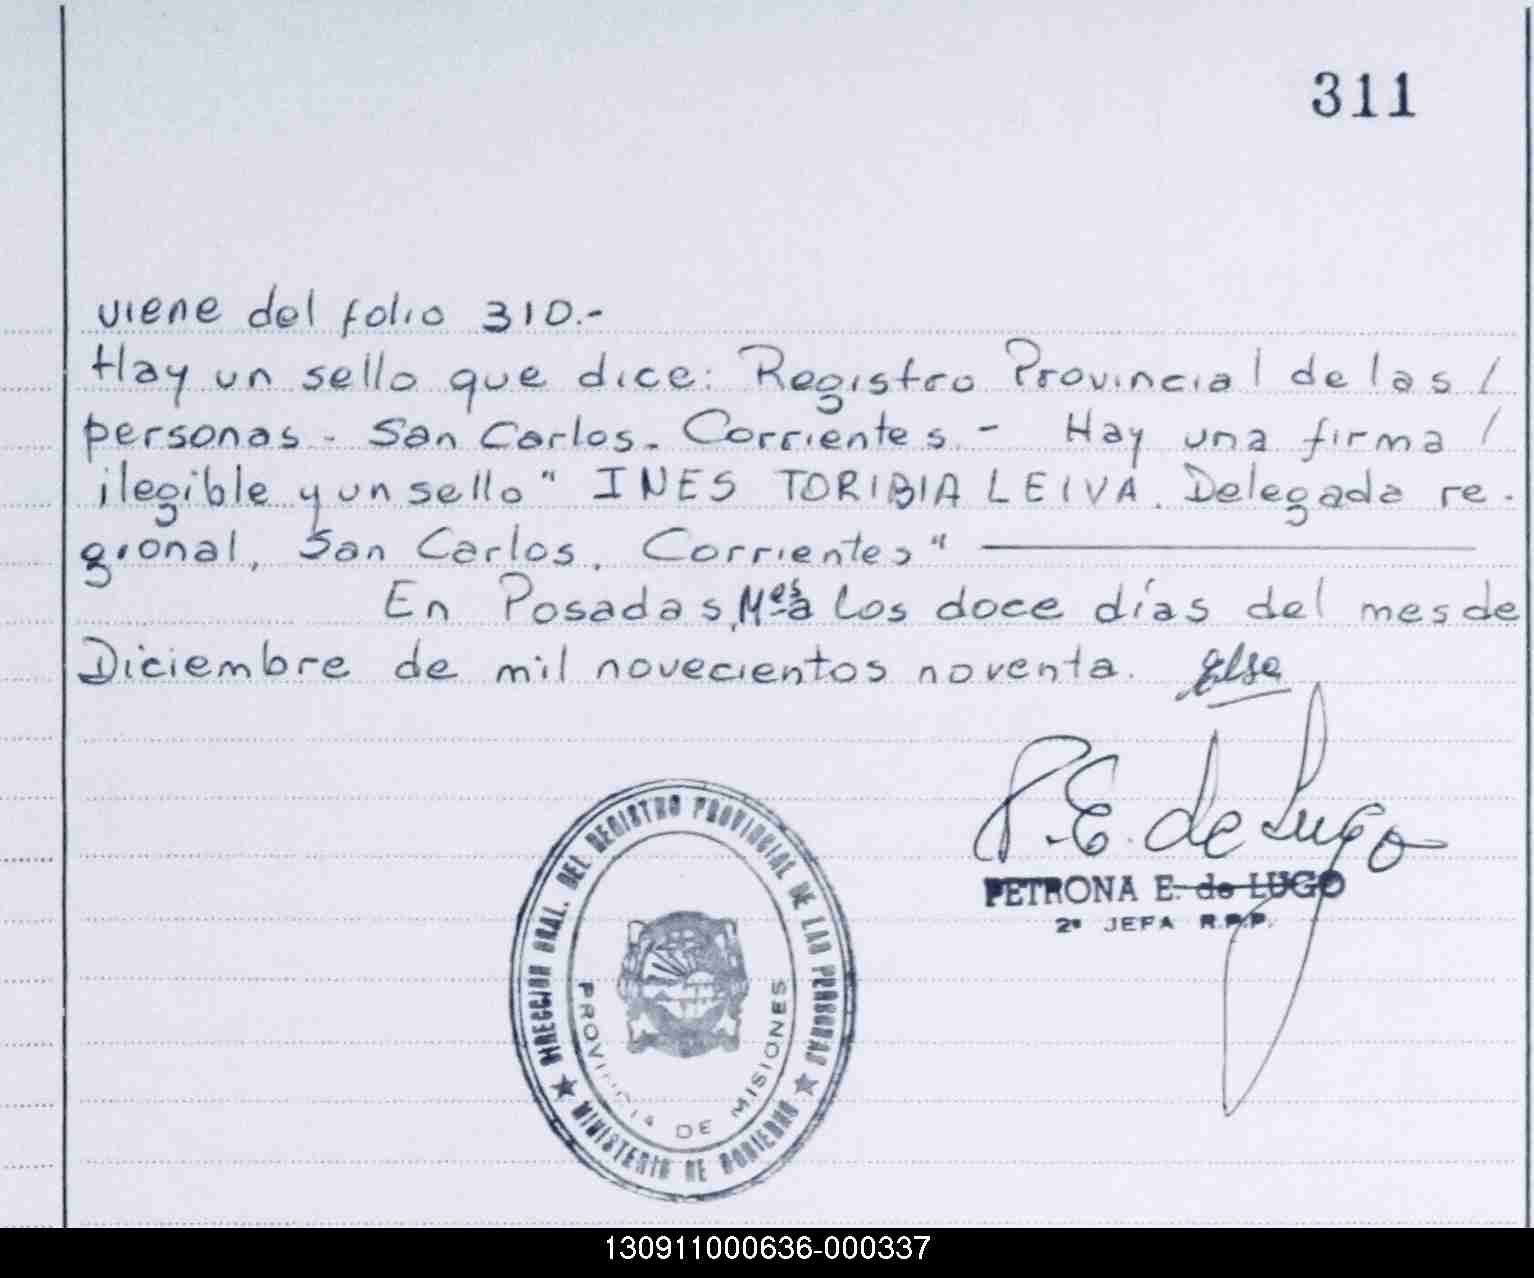 311
viene del folio 310.-
Hay un sello que dice: Registro Provincial de las /
personas - San Carlos. Corrientes. - Hay una firma /
ilegible y un sello "INES TORIBIA LEIVA. Delegada re-
gional, San Carlos, Corrientes"
En Posadas, Mes a los doce días del mes de
Diciembre de mil novecientos noventa.
P.E. de Lugo
PETRONA E. de LUGO
2ª JEFA R.P.P.
DIRECCION GRAL. DEL REGISTRO PROVINCIAL DE LAS PERSONAS
★ MINISTERIO DE GOBIERNO ★
PROVINCIA DE MISIONES
130911000636-000337